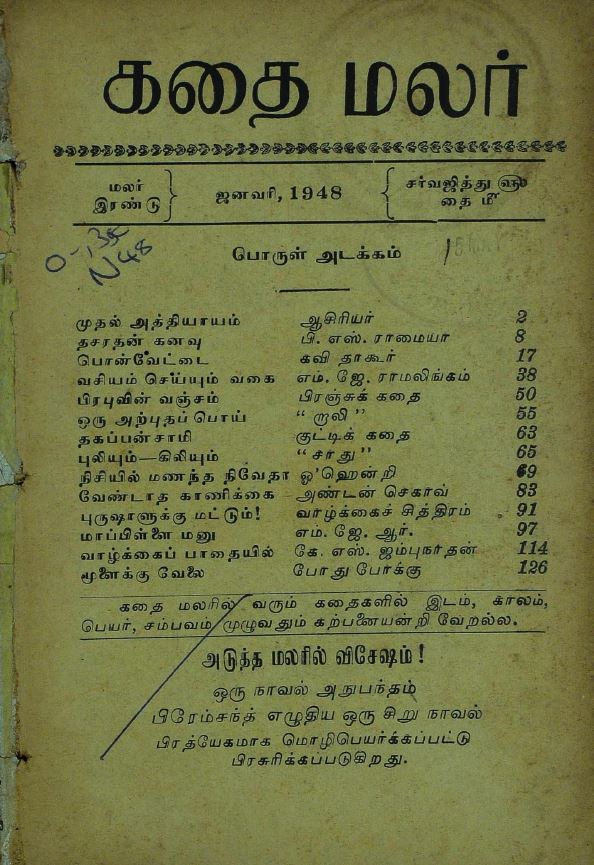 கதை மலர்
மலர் இரண்டு } ஜனவரி, 1948 { சர்வஜித்து ௵ தை ௴
0-,38
N48
பொருள் அடக்கம்
முதல் அத்தியாயம் ஆசிரியர் 2
தசரதன் கனவு பி. எஸ். ராமையா 8
பொன்வேட்டை கவி தாகூர் 17
வசியம் செய்யும் வகை எம். ஜே. ராமலிங்கம் 38
பிரபுவின் வஞ்சம் பிரஞ்சுக் கதை 50
ஒரு அற்புதப் பொய் “ றாலி ” 55
தகப்பன்சாமி குட்டிக் கதை 63
புலியும்—கிலியும் “சாது” 65
நிசியில் மணந்த நிவேதா ஓ'ஹென்றி 69
வேண்டாத காணிக்கை அண்டன் செகாவ் 83
புருஷாளுக்கு மட்டும்! வாழ்க்கைச் சித்திரம் 91
மாப்பிள்ளை மனு எம். ஜே. ஆர். 97
வாழ்க்கைப் பாதையில் கே. எஸ். ஜம்புநாதன் 114
மூளைக்கு வேலை போது போக்கு 126
கதை மலரில் வரும் கதைகளில் இடம், காலம்,
பெயர், சம்பவம் முழுவதும் கற்பனையன்றி வேறல்ல.
அடுத்த மலரில் விசேஷம் !
ஒரு நாவல் அநுபந்தம்
பிரேம்சந்த் எழுதிய ஒரு சிறு நாவல்
பிரத்யேகமாக மொழிபெயர்க்கப்பட்டு
பிரசுரிக்கப்படுகிறது.